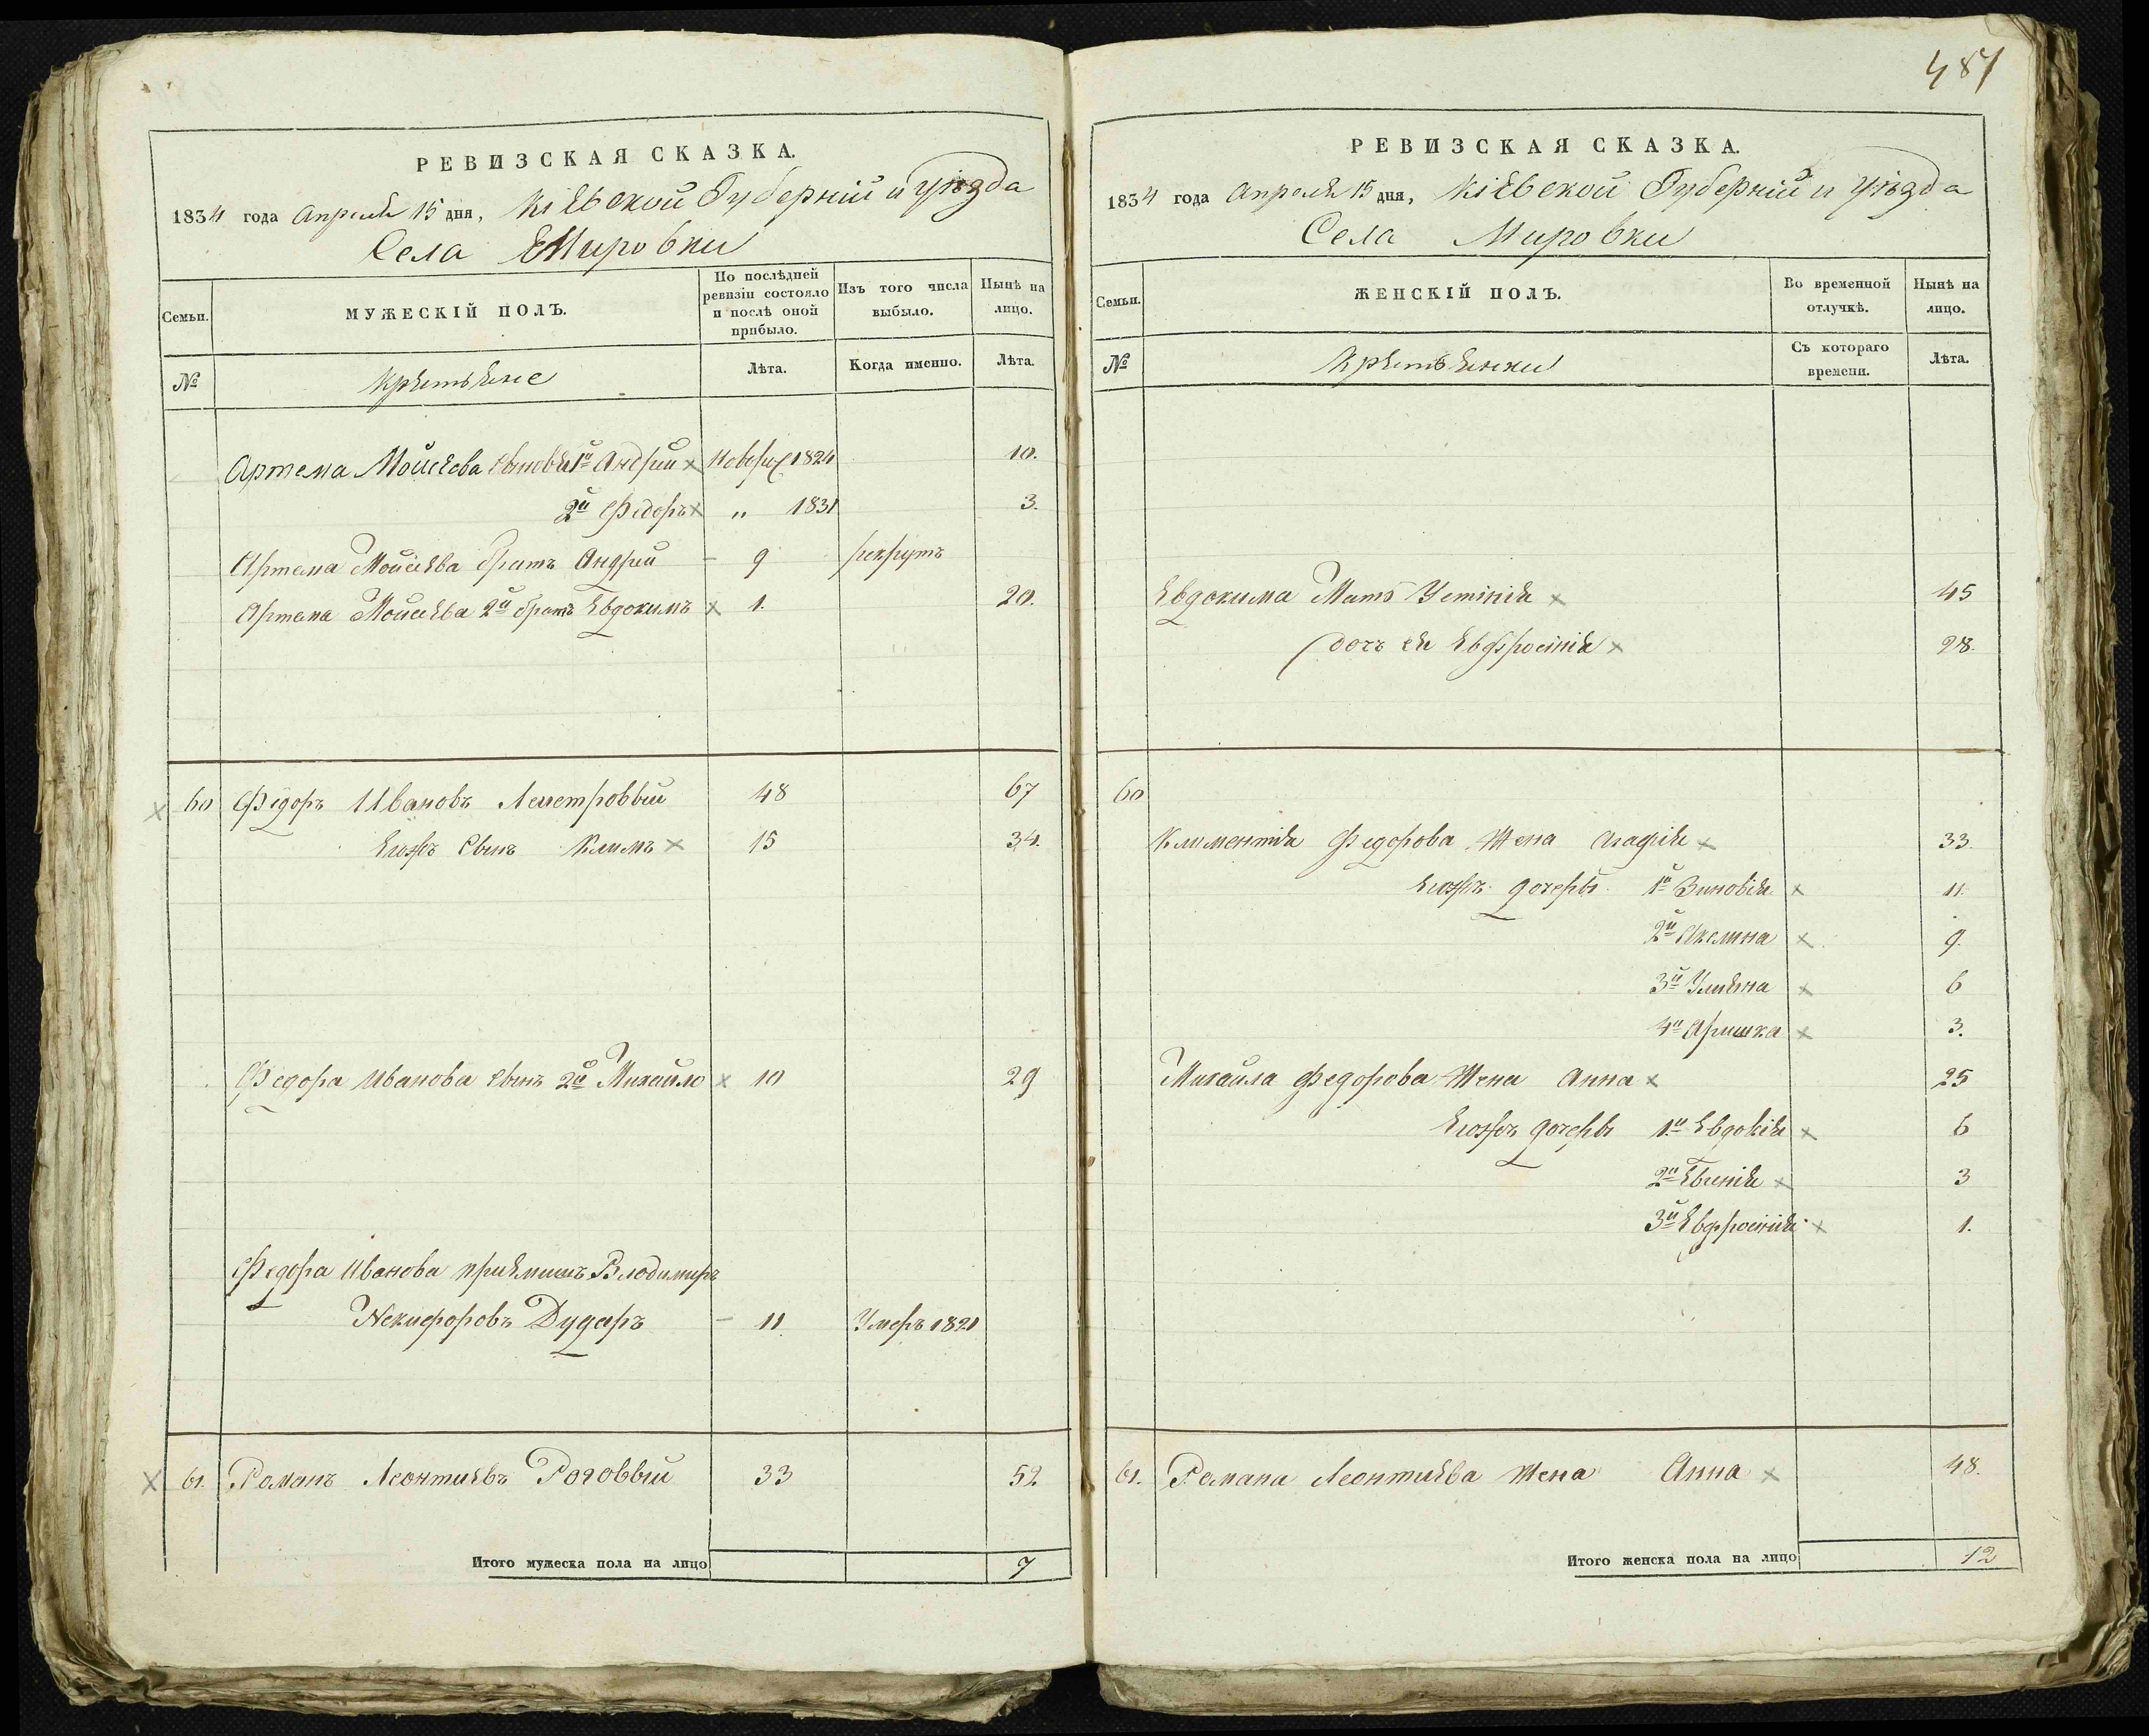 481
РЕВИЗСКАЯ СКАЗКА.
1834 года Апреля 15 дня, Кіевской Губерніи и уезда
Села Мировки
Семьи. МУЖЕСКІЙ ПОЛЪ. По послѣдней ревизіи состояло и послѣ оной прибыло. Изъ того числа выбыло. Нынѣ на лицо.
№ Крестьяне Лѣта. Когда именно. Лѣта.
Артема Мойсеева сыновья 1й Андрей × 1824 10.
2й Федоръ × „ 1831 3.
Артема Мойсеева братъ Андрей – 9 рекрутъ
Артема Мойсеева 2й братъ Евдокимъ × 1. 20.
× 60 Федоръ Ивановъ 48 67
Егожъ Сынъ Климъ × 15 34.
Федора Иванова сынъ 2й Михайло × 10 29
Федора Иванова приемышъ Влодимиръ
Некифоровъ Дударъ – 11. Умеръ 1821
× 61. Романъ Леонтиевъ Роговый 33 52
Итого мужеска пола на лицо 7
РЕВИЗСКАЯ СКАЗКА.
1834 года Апреля 15 дня, Кіевской Губерніи и уѣзда
Села Мировки
Семьи. ЖЕНСКІЙ ПОЛЪ. Во временной отлучкѣ. Нынѣ на лицо.
№ Крестьянки Съ котораго времени. Лѣта.
Евдокима Мать Устинія × 45
дочь ея Евфросинія × 28.
60
Климентія Федорова Жена Агафія × 33
Егожъ дочеры 1я Зиновія × 11.
2я Акелина × 9.
3я Улияна × 6
4я Аришка × 3.
Михайла Федорова Жена Анна × 25
Егожъ дочеры 1я Евдокія × 6
2я Евгенія × 3
3я Евфросинія × 1.
61. Романа Леонтиева Жена Анна × 48.
Итого женска пола на лицо 12